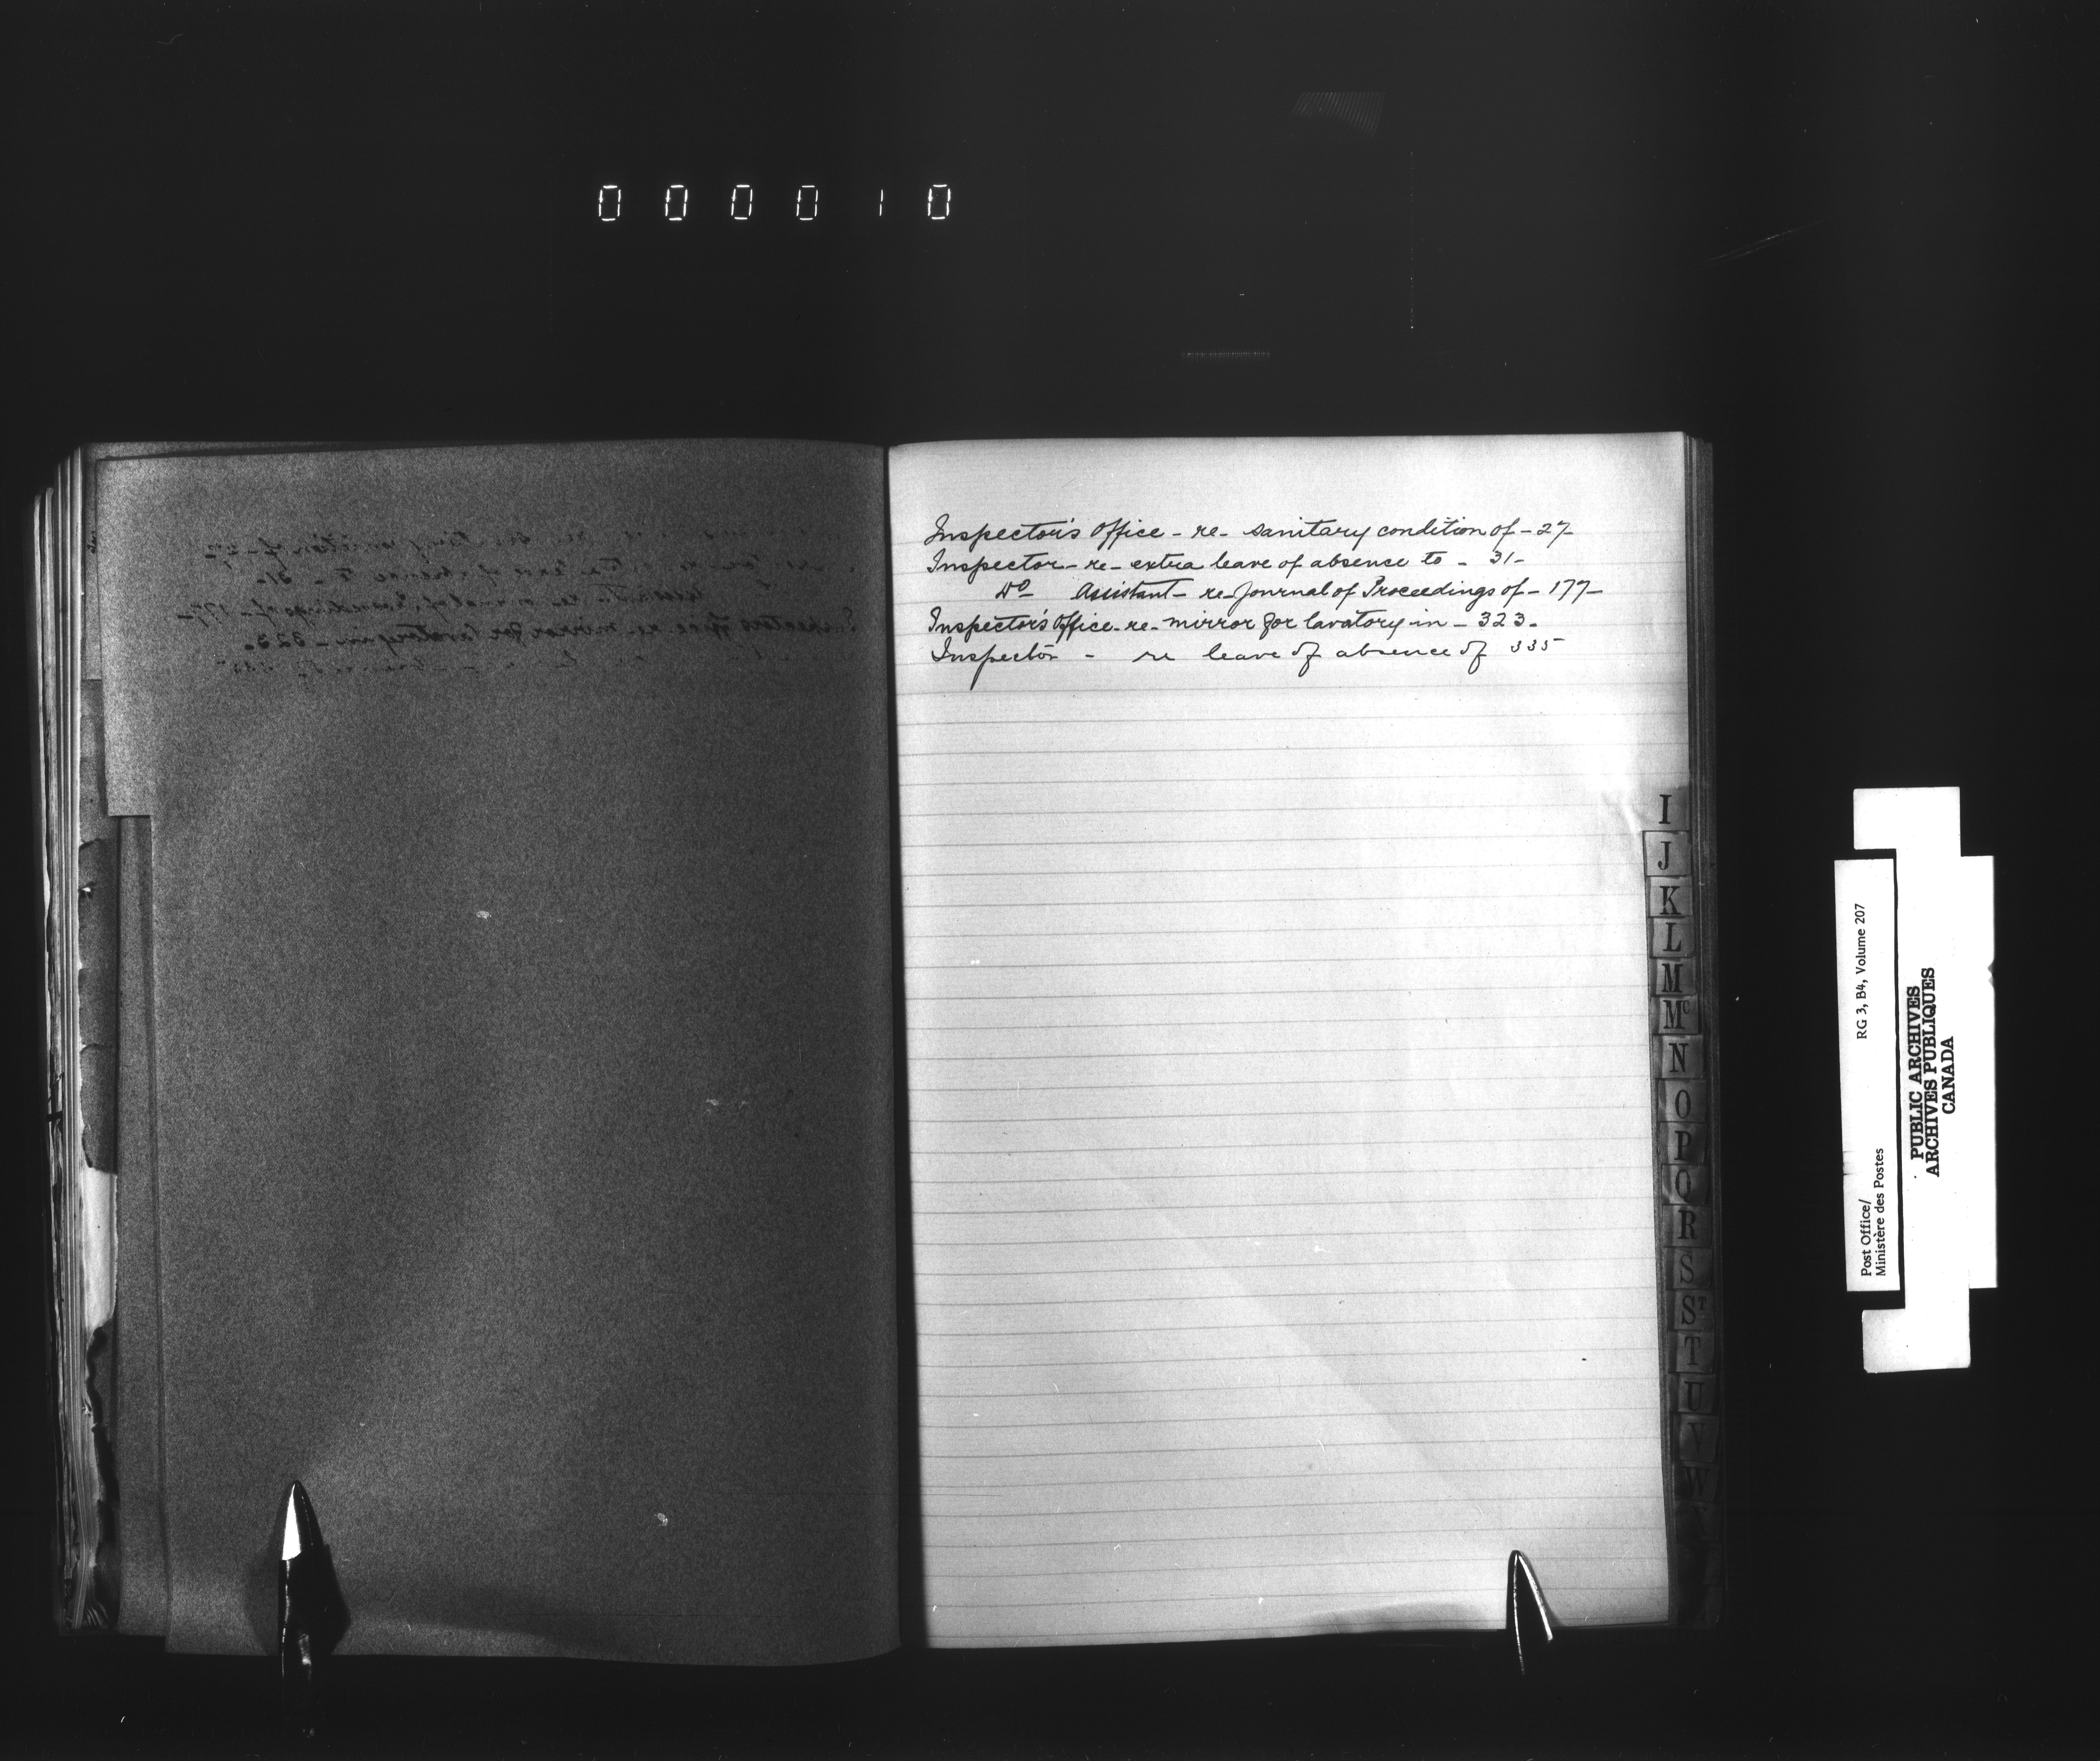 000010
Inspector's Office - re - sanitary condition of - 27 -
Inspector - re - extra leave of absence to - 31 -
Do Assistant - re - Journal of Proceedings of - 177 -
Inspector's Office - re - mirror for lavatory in - 323 -
Inspector - re leave of absence of 335
I
J
K
L
M
Mc
N
O
P
Q
R
S
ST
T
U
V
W
Post Office/ RG 3, B4, Volume 207
Ministère des Postes
PUBLIC ARCHIVES
ARCHIVES PUBLIQUES
CANADA